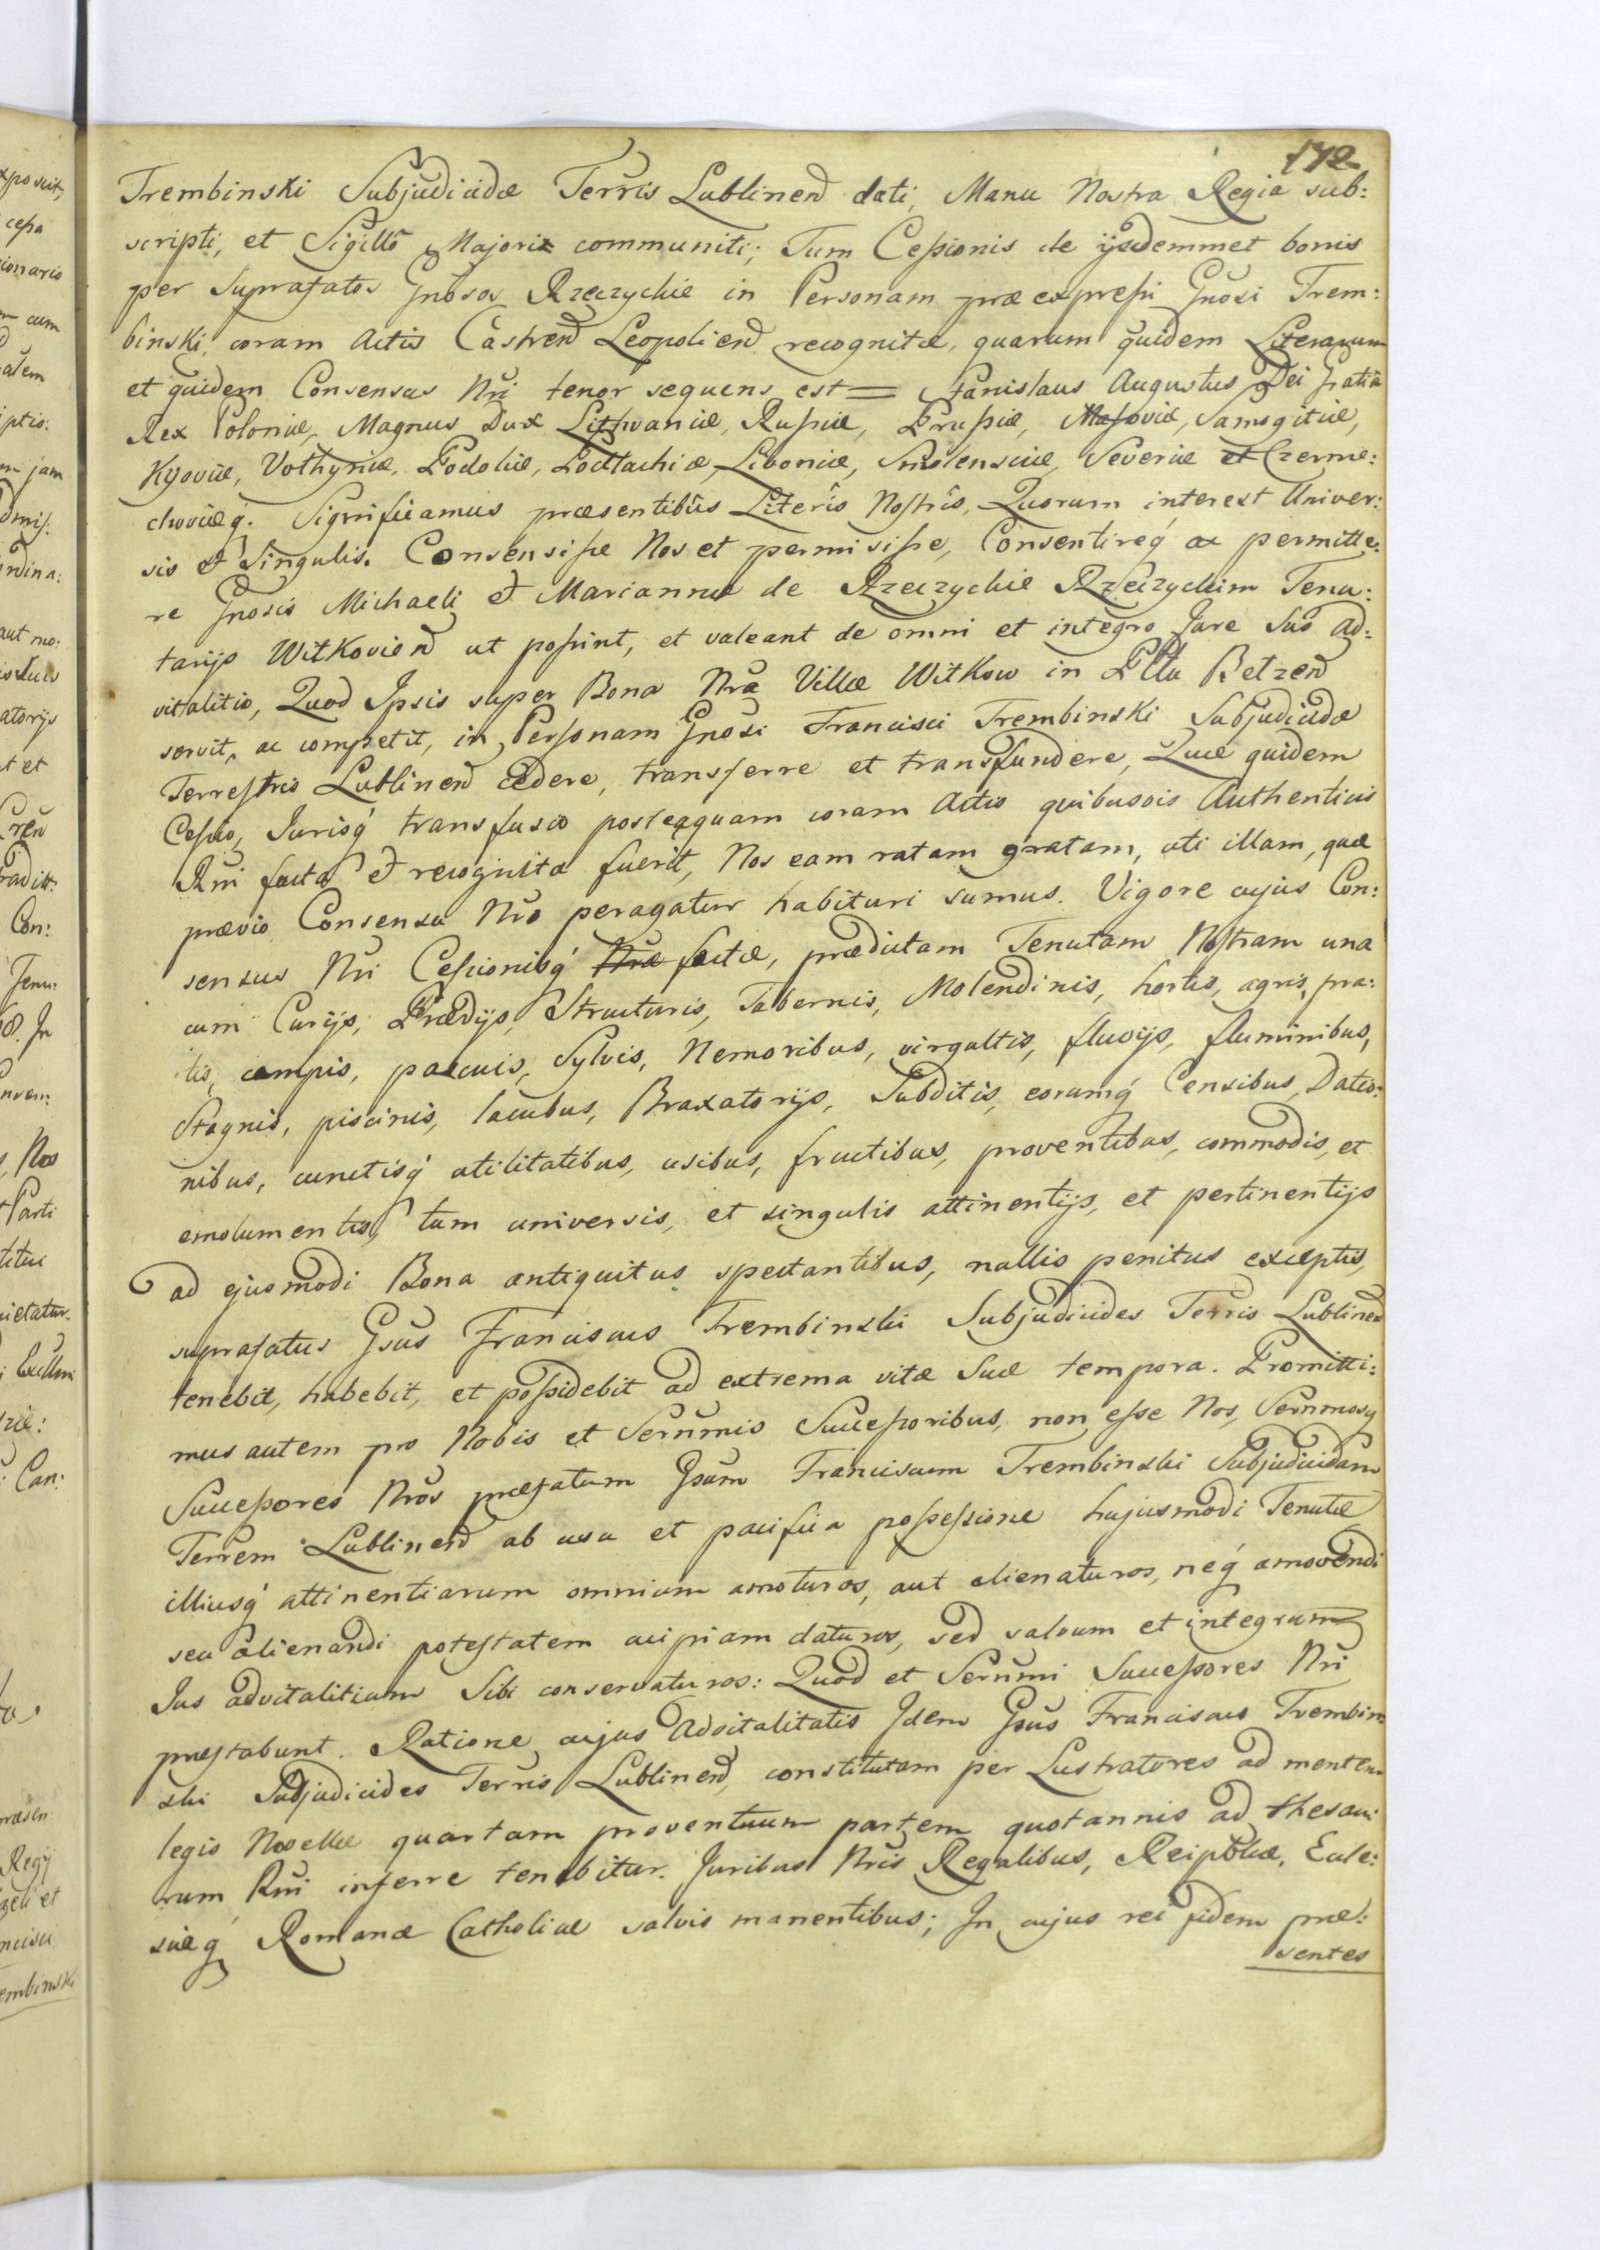 172
Trembinski Subjudicidæ Terris Lublinen dati, Manu Nostra Regia sub:
scripti, et Sigillo Majoris communiti; Tum Cessionis de ijsdemmet bonis
per Suprafatos Gnosos Rzeczyckie in Personam præexpressi Gnosi Trem:
binski, coram Actis Castren Leopolien recognitæ, quarum quidem Literarum
et quidem Consensus Nri tenor sequens est = Stanislaus Augustus Dei Gratia
Rex Poloniæ, Magnus Dux Lithvaniæ, Russiæ, Prussiæ, Masoviæ, Samogitiæ,
Kyoviæ, Vothyniæ, Podoliæ, Podlachiæ, Livoniæ, Smolensciæ, Severiæ et Czernie:
choviæq́. Significamus præsentibus Literis Nostris, Quorum interest Univer:
sis et Singulis. Consensisse Nos et permisisse, Consentireq́ ac permitte:
re Gnosis Michaeli et Mariannæ de Rzeczyckie Rzeczyckim Tenu:
tarijs Witkovien ut possint, et valeant de omni et integro Jure Suo ad:
vitalitio, Quod Ipsis super Bona Nra Villæ Witkow in Pttu Betzen
servit, ac competit, in Personam Gnosi Francisci Trembinski Subjudicidæ
Terrestris Lublinen cedere, transferre et transfundere, Quæ quidem
Cessio, Jurisq́ transfusio posteaquam coram Actis quibusvis Authenticis
Rni facta et recognita fuerit, Nos eam ratam gratam, uti illam, quæ
prævio Consensu Nro peragatur habituri sumus. Vigore cujus Con:
sensus Nri Cessionisq́ Nræ factæ, prædictam Tenutam Nostram una
cum Curijs, Prædijs, Structuris, Tabernis, Molendinis, hortis, agris, pra:
tis, campis, pascuis, Sylvis, Nemoribus, virgultis, fluvijs, fluminibus,
Stagnis, piscinis, lacubus, Braxatorijs, Subditis, eorumq́ Censibus, Datio:
nibus, cunctisq́ utilitatibus, usibus, fructibus, proventibus, commodis, et
emolumentis, tum universis, et singulis attinentijs, et pertinentijs
ad ejusmodi Bona antiquitus spectantibus, nullis penitus exceptis,
suprafatus Gsus Franciscus Trembinski Subjudicides Terris Lublinen
tenebit, habebit, et possidebit ad extrema vitæ Suæ tempora. Promitti:
mus autem pro Nobis et Serunmis Successoribus, non esse Nos, Serunmosq
Successores Nros præfatum Gsum Franciscum Trembinski Subjudicidam
Terrem Lublinen ab usu et pacifica possessione hujusmodi Tenutæ
illiusq́ attinentiarum omnium amoturos, aut alienaturos, neq́ amovendi
seu alienandi potestatem cuipiam daturos, sed salvum et integrum
Jus advitalitium Sibi conservaturos: Quod et Serunmi Successores Nri
præstabunt. Ratione cujus Advitalitatis Idem Gsus Franciscus Trembin:
ski Subjudicides Terris Lublinen, constitutam per Lustratores ad mentem
legis Novellæ quartam proventuum partem quotannis ad thesau:
rum Rni inferre tenebitur. Juribus Nris Regalibus, Reipblcæ, Eccle:
siæq́ Romanæ Catholicæ salvis manentibus; In cujus rei fidem præ:
sentes